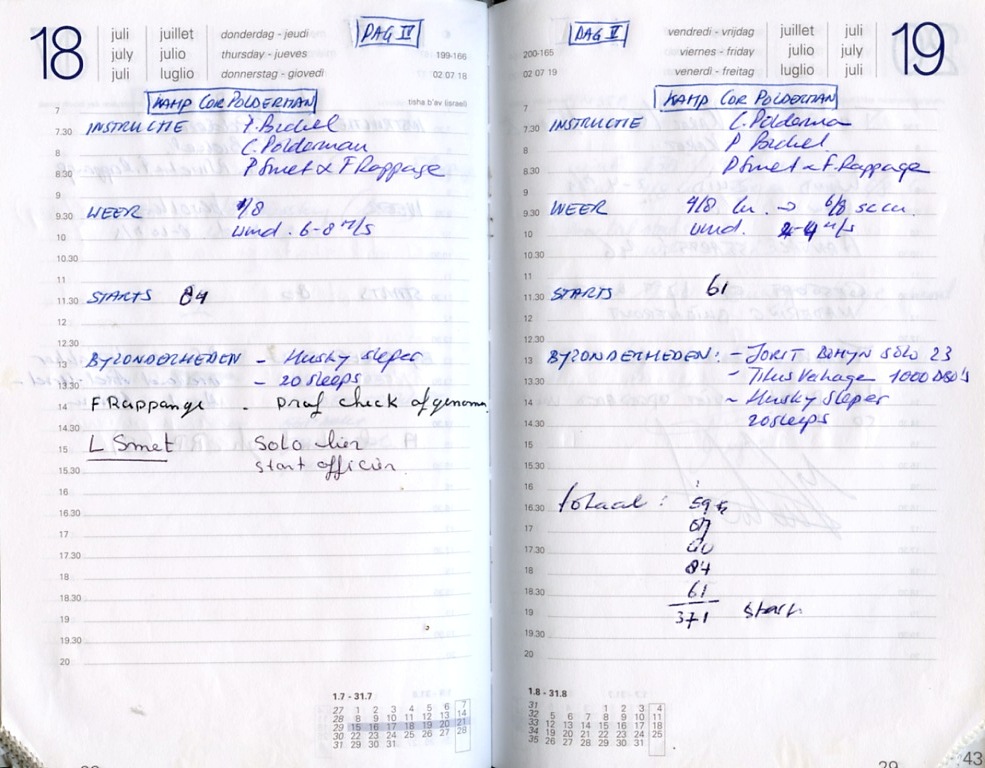 18
juli juillet donderdag - jeudi
july julio thursday - jueves
juli luglio donnerstag - giovedi
DAG IV
199-166
02 07 18
KAMP COR POLDERMAN
tisha b'av (israel)
7
7.30 INSTRUCTIE P. Bichel
8 C. Polderman
8.30 P Smet & F Rappage
9
9.30 WEER /8
10 wind. 6-8 m/s
10.30
11
11.30 STARTS 84
12
12.30
13 BYZONDERHEDEN - Husky sleper
13.30 - 20 sleeps
14 F. Rappange - Prof check afgenomen
14.30
15 L Smet Solo lier
15.30 start officier
16
16.30
17
17.30
18
18.30
19
19.30
20
1.7 - 31.7
27 1 2 3 4 5 6 7
28 8 9 10 11 12 13 14
29 15 16 17 18 19 20 21
30 22 23 24 25 26 27 28
31 29 30 31
DAG V
200-165
02 07 19
vendredi - vrijdag juillet juli
viernes - friday julio july
venerdi - freitag luglio juli
19
KAMP COR POLDERMAN
7
7.30 INSTRUCTIE C. Polderman
8 P Bichel
8.30 P Smet & F. Rappage
9
9.30 WEER 4/8 cu. → 6/8 sc cu.
10 wind. 2-4 m/s
10.30
11
11.30 STARTS 61
12
12.30
13 BYZONDERHEDEN: - JORIT SOLO 23
13.30 - Titus 1000 DBO's
14 - Husky Sleper
14.30 20 sleeps
15
15.30
16
16.30 totaal:
17
17.30
18 84
18.30 61
19 371 starts
19.30
20
1.8 - 31.8
31 1 2 3 4
32 5 6 7 8 9 10 11
33 12 13 14 15 16 17 18
34 19 20 21 22 23 24 25
35 26 27 28 29 30 31
29
43